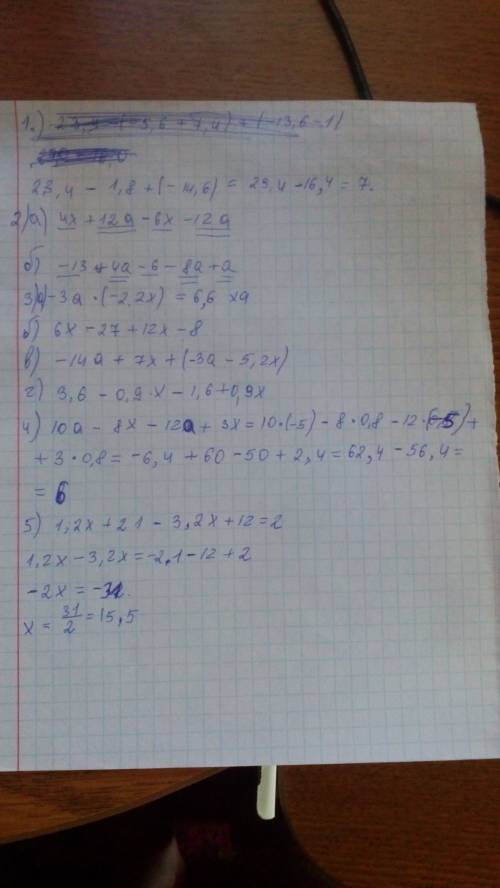 1.) 23,4 - (-5,6 + 7,4) + (-13,6 - 1)
23,4 - 1,8 + (- 14,6) = 23,4 - 16,4 = 7.
2) а) 4x + 12a - 6x - 12a
б) -13 + 4a - 6 - 8a + a
3) а) -3a · (-2,2x) = 6,6 xa
б) 6x - 27 + 12x - 8
в) -14a + 7x + (-3a - 5,2x)
г) 3,6 - 0,9·x - 1,6 + 0,9x
4) 10a - 8x - 12a + 3x = 10·(-5) - 8·0,8 - 12·(-5) +
+ 3·0,8 = -6,4 + 60 - 50 + 2,4 = 62,4 - 56,4 =
= 6
5) 1,2x + 21 - 3,2x + 12 = 2
1,2x - 3,2x = -2,1 - 12 + 2
-2x = -31.
x = 31/2 = 15,5